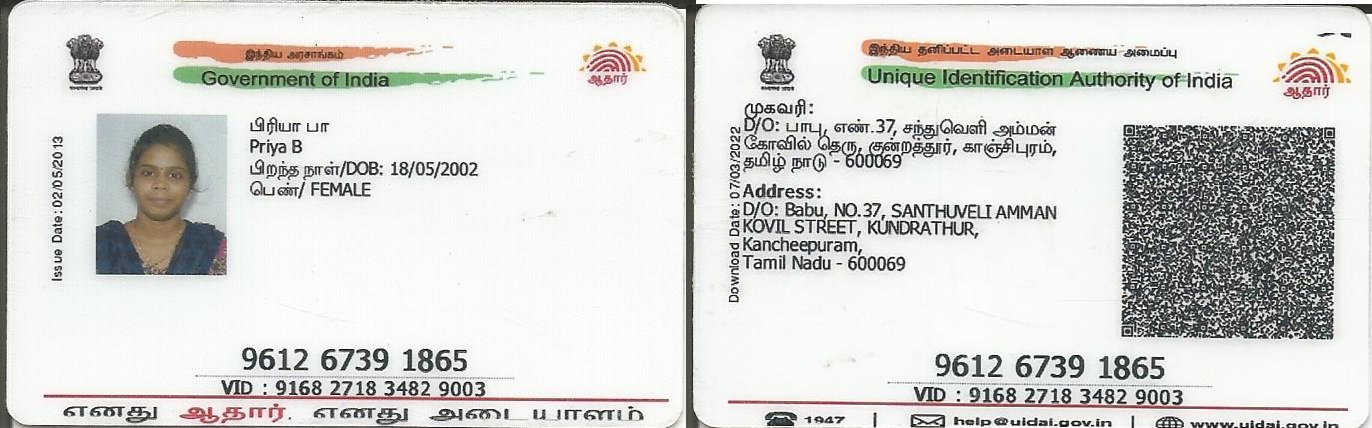 இந்திய அரசாங்கம்
Government of India
ஆதார்
Issue Date: 02/05/2013
பிரியா பா
Priya B
பிறந்த நாள்/DOB: 18/05/2002
பெண்/ FEMALE
9612 6739 1865
VID : 9168 2718 3482 9003
எனது ஆதார், எனது அடையாளம்
இந்திய தனிப்பட்ட அடையாள ஆணைய அமைப்பு
Unique Identification Authority of India
ஆதார்
Download Date: 07/03/2022
முகவரி:
D/O: பாபு, எண்.37, சந்துவெளி அம்மன்
கோவில் தெரு, குன்றத்தூர், காஞ்சிபுரம்,
தமிழ் நாடு - 600069
Address:
D/O: Babu, NO.37, SANTHUVELI AMMAN
KOVIL STREET, KUNDRATHUR,
Kancheepuram,
Tamil Nadu - 600069
9612 6739 1865
VID : 9168 2718 3482 9003
1947 | help@uidai.gov.in | www.uidai.gov.in